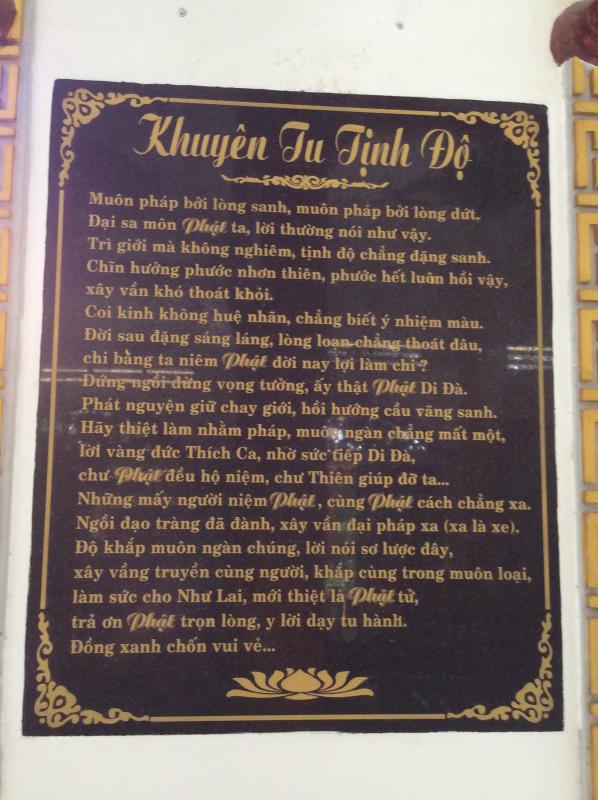 Khuyên Tu Tịnh Độ
Muôn pháp bởi lòng sanh, muôn pháp bởi lòng dứt.
Đại sa môn Phật ta, lời thường nói như vậy.
Trì giới mà không nghiêm, tịnh độ chẳng đặng sanh.
Chỉn hưởng phước nhơn thiên, phước hết luân hồi vậy,
xây vần khó thoát khỏi.
Coi kinh không huệ nhãn, chẳng biết ý nhiệm màu.
Đời sau đặng sáng láng, lòng loạn chẳng thoát đâu,
chi bằng ta niệm Phật đời nay lợi làm chi ?
Đứng ngồi đừng vọng tưởng, ấy thật Phật Di Đà.
Phát nguyện giữ chay giới, hồi hướng cầu vãng sanh.
Hãy thiệt làm nhằm pháp, muôn ngàn chẳng mất một,
lời vàng đức Thích Ca, nhờ sức tiếp Di Đà,
chư Phật đều hộ niệm, chư Thiên giúp đỡ ta...
Những mấy người niệm Phật , cùng Phật cách chẳng xa.
Ngồi đạo tràng đã đành, xây vần đại pháp xa (xa là xe).
Độ khắp muôn ngàn chúng, lời nói sơ lược đây,
xây vầng truyền cùng người, khắp cùng trong muôn loại,
làm sức cho Như Lai, mới thiệt là Phật tử,
trả ơn Phật trọn lòng, y lời dạy tu hành.
Đồng xanh chốn vui vẻ...